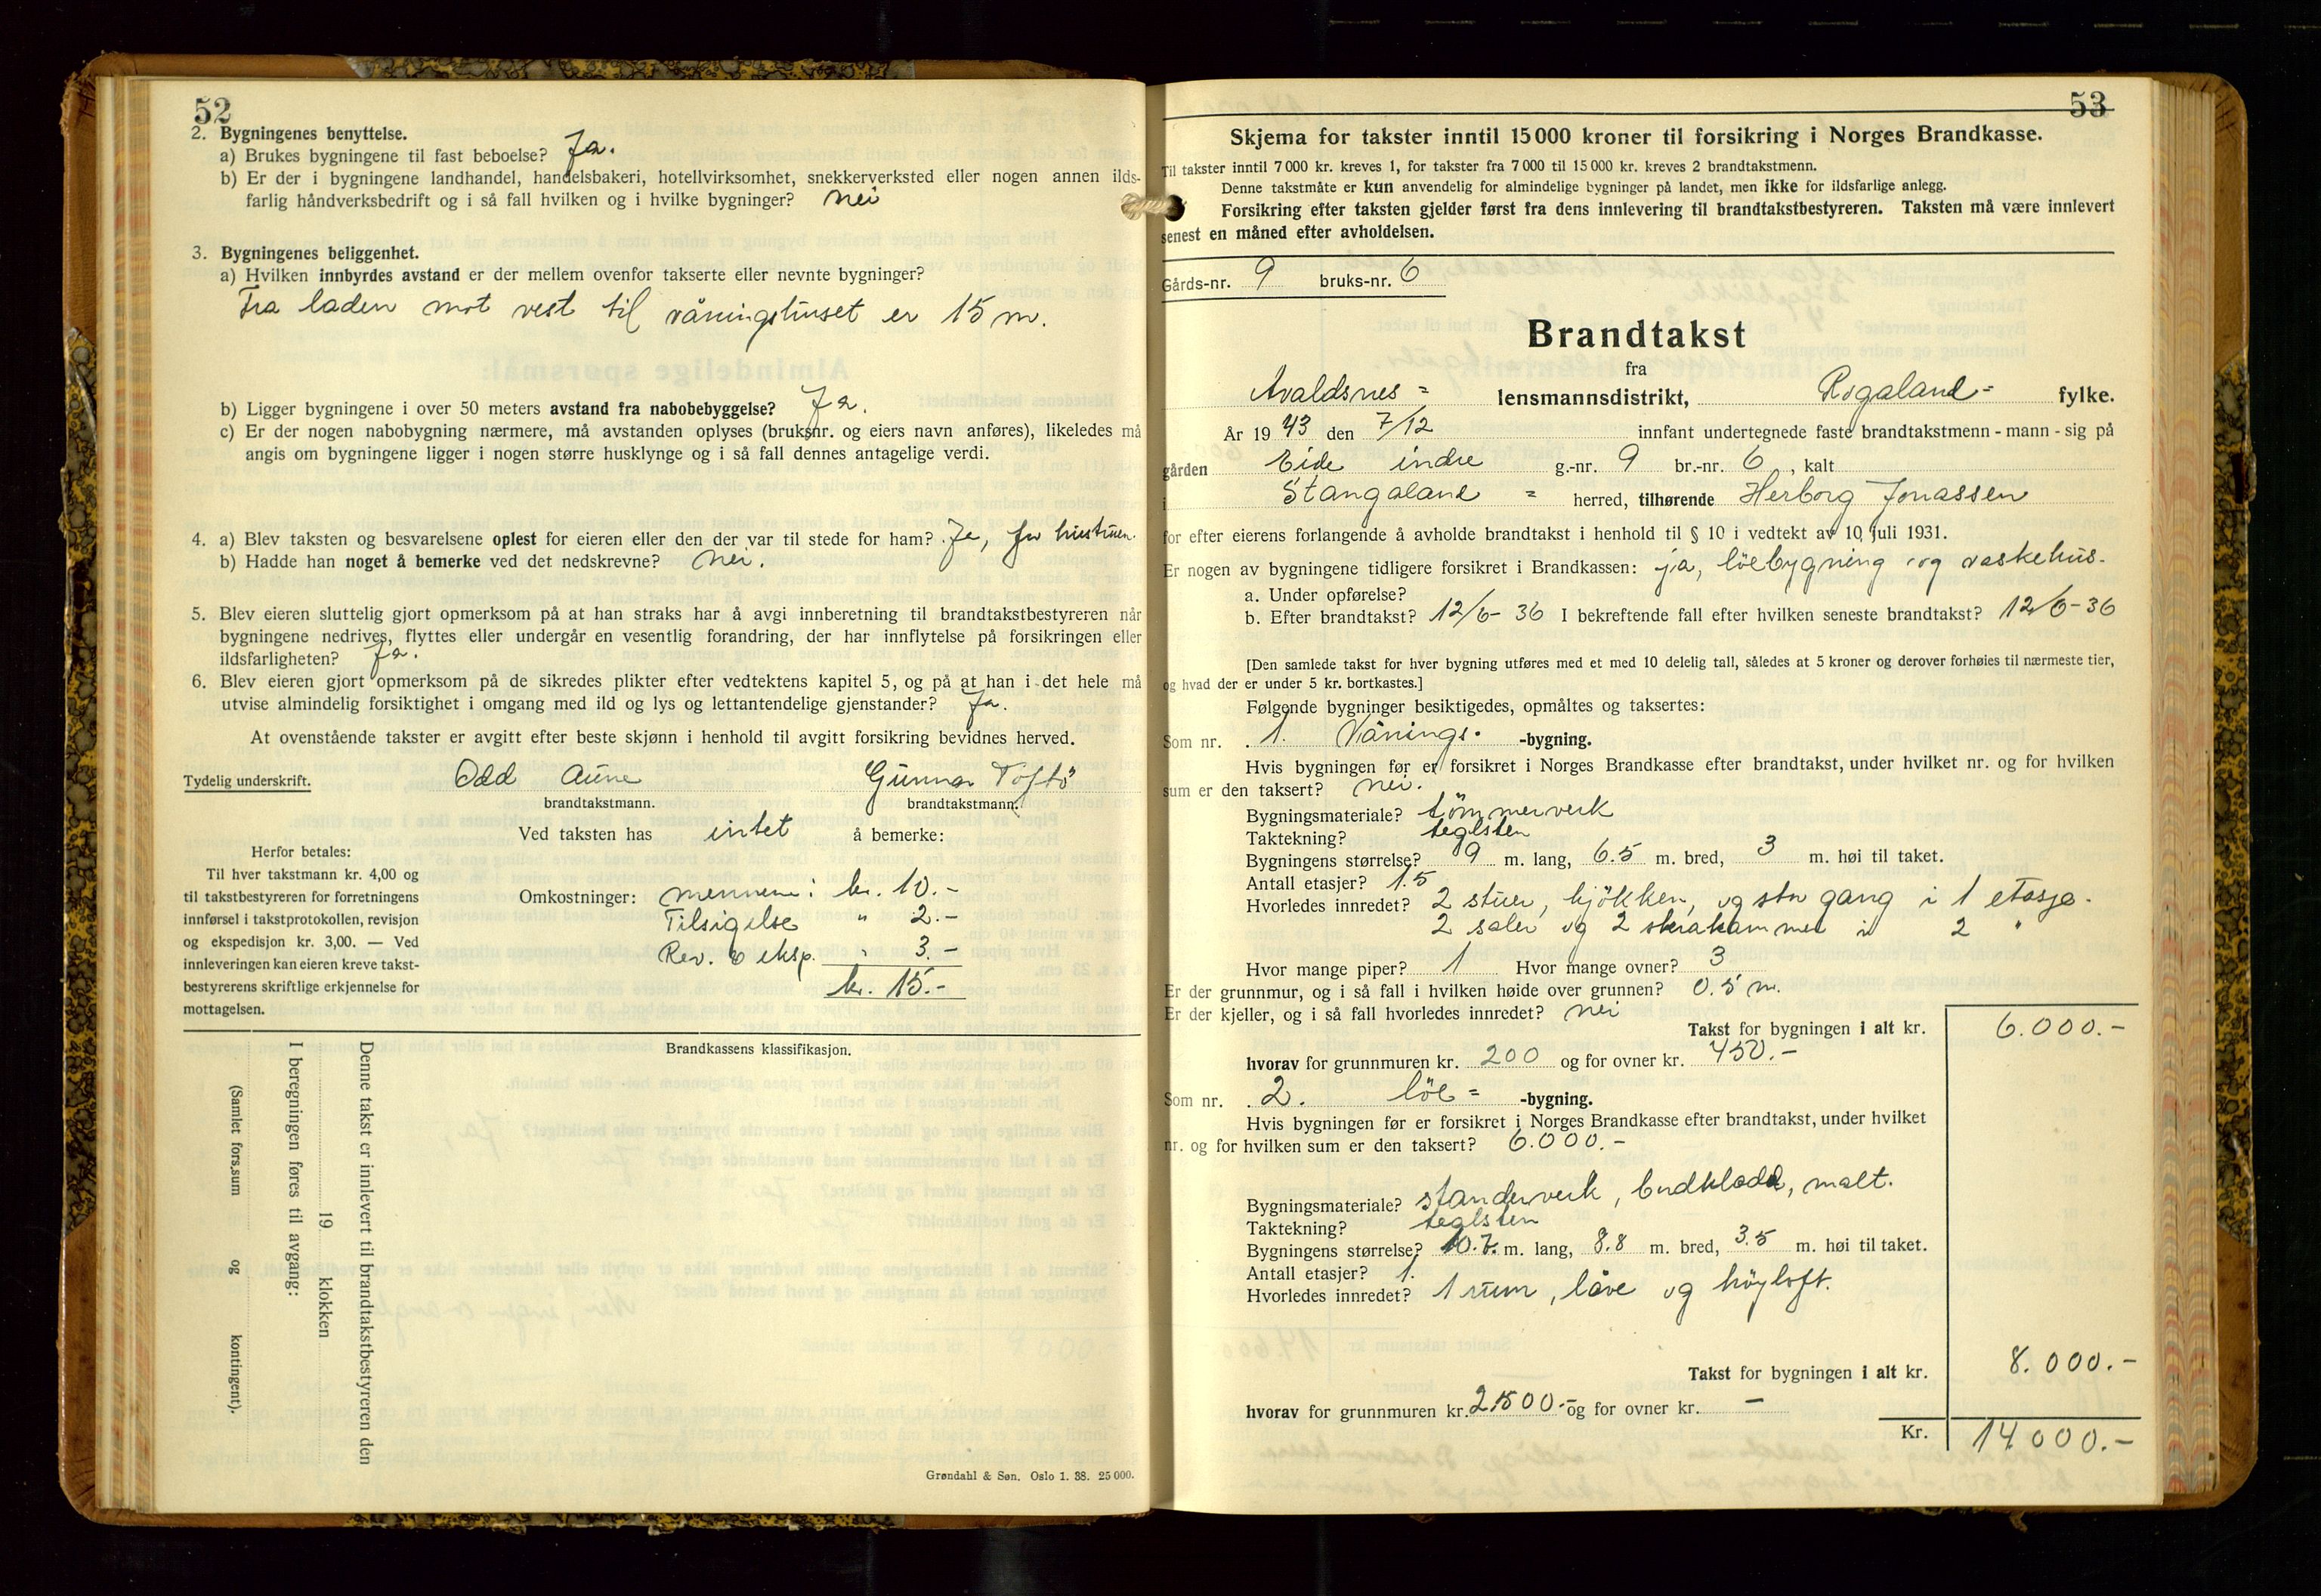 52
2. Bygningenes benyttelse.
a) Brukes bygningene til fast beboelse? Ja.
b) Er der i bygningene landhandel, handelsbakeri, hotellvirksomhet, snekkerverksted eller nogen annen ilds-
farlig håndverksbedrift og i så fall hvilken og i hvilke bygninger? nei
3. Bygningenes beliggenhet.
a) Hvilken innbyrdes avstand er der mellem ovenfor takserte eller nevnte bygninger?
Fra laden mot vest til våningshuset er 15 m.
b) Ligger bygningene i over 50 meters avstand fra nabobebyggelse? Ja.
c) Er der nogen nabobygning nærmere, må avstanden oplyses (bruksnr. og eiers navn anføres), likeledes må
angis om bygningene ligger i nogen større husklynge og i så fall dennes antagelige verdi.
4. a) Blev taksten og besvarelsene oplest for eieren eller den der var til stede for ham? Ja, for hustruen.
b) Hadde han noget å bemerke ved det nedskrevne? nei.
5. Blev eieren sluttelig gjort opmerksom på at han straks har å avgi innberetning til brandtakstbestyreren når
bygningene nedrives, flyttes eller undergår en vesentlig forandring, der har innflytelse på forsikringen eller
ildsfarligheten? Ja.
6. Blev eieren gjort opmerksom på de sikredes plikter efter vedtektens kapitel 5, og på at han i det hele må
utvise almindelig forsiktighet i omgang med ild og lys og lettantendelige gjenstander? Ja.
At ovenstående takster er avgitt efter beste skjønn i henhold til avgitt forsikring bevidnes herved.
Tydelig underskrift. Odd Aune Gunnar Toftö
brandtakstmann. brandtakstmann.
Ved taksten has intet å bemerke:
Herfor betales:
Til hver takstmann kr. 4,00 og
til takstbestyreren for forretningens
innførsel i takstprotokollen, revisjon
og ekspedisjon kr. 3,00. — Ved
innleveringen kan eieren kreve takst-
bestyrerens skriftlige erkjennelse for
mottagelsen.
Omkostninger: mennene: kr. 10.-
Tilsigelse " 2.-
Rev. & eksp. " 3.-
kr. 15.-
Brandkassens klassifikasjon.
Denne takst er innlevert til brandtakstbestyreren den
19 klokken
I beregningen føres til avgang:
(Samlet fors.sum og kontingent).
Grøndahl & Søn. Oslo 1. 38. 25 000.
53
Skjema for takster inntil 15 000 kroner til forsikring i Norges Brandkasse.
Til takster inntil 7 000 kr. kreves 1, for takster fra 7 000 til 15 000 kr. kreves 2 brandtakstmenn.
Denne takstmåte er kun anvendelig for almindelige bygninger på landet, men ikke for ildsfarlige anlegg.
Forsikring efter taksten gjelder først fra dens innlevering til brandtakstbestyreren. Taksten må være innlevert
senest en måned efter avholdelsen.
Gårds-nr. 9 bruks-nr. 6
Brandtakst
fra
Avaldsnes = lensmannsdistrikt, Rogaland = fylke.
År 19 43 den 7/12 innfant undertegnede faste brandtakstmenn - mann - sig på
gården Eide indre g.-nr. 9 br.-nr. 6, kalt
i Stangaland = herred, tilhørende Herborg Jonassen
for efter eierens forlangende å avholde brandtakst i henhold til § 10 i vedtekt av 10. juli 1931.
Er nogen av bygningene tidligere forsikret i Brandkassen: ja, löebygning og vaskehus.
a. Under opførelse?
b. Efter brandtakst? 12/6-36 I bekreftende fall efter hvilken seneste brandtakst? 12/6-36
[Den samlede takst for hver bygning utføres med et med 10 delelig tall, således at 5 kroner og derover forhøies til nærmeste tier,
og hvad der er under 5 kr. bortkastes.]
Følgende bygninger besiktigedes, opmåltes og taksertes:
Som nr. 1. Vånings- -bygning.
Hvis bygningen før er forsikret i Norges Brandkasse efter brandtakst, under hvilket nr. og for hvilken
sum er den taksert? nei.
Bygningsmateriale? tömmerverk
Taktekning? teglsten
Bygningens størrelse? 9 m. lang, 6.5 m. bred, 3 m. høi til taket.
Antall etasjer? 1.5
Hvorledes innredet? 2 stuer, kjökken, og stor gang i 1 etasje.
2 saler og 2 skråkammer i 2 "
Hvor mange piper? 1 Hvor mange ovner? 3
Er der grunnmur, og i så fall i hvilken høide over grunnen? 0.5 m.
Er der kjeller, og i så fall hvorledes innredet? nei
Takst for bygningen i alt kr. 6.000.-
hvorav for grunnmuren kr. 200 og for ovner kr. 450.-
Som nr. 2. löe = -bygning.
Hvis bygningen før er forsikret i Norges Brandkasse efter brandtakst, under hvilket
nr. og for hvilken sum er den taksert? 6.000.-
Bygningsmateriale? standerverk, bordkledd, malt.
Taktekning? teglsten
Bygningens størrelse? 10.7 m. lang, 8.8 m. bred, 3.5 m. høi til taket.
Antall etasjer? 1.
Hvorledes innredet? 1 rum, låve og höyloft.
Takst for bygningen i alt kr. 8.000.-
hvorav for grunnmuren kr. 2500.- og for ovner kr. -
Kr. 14000.-